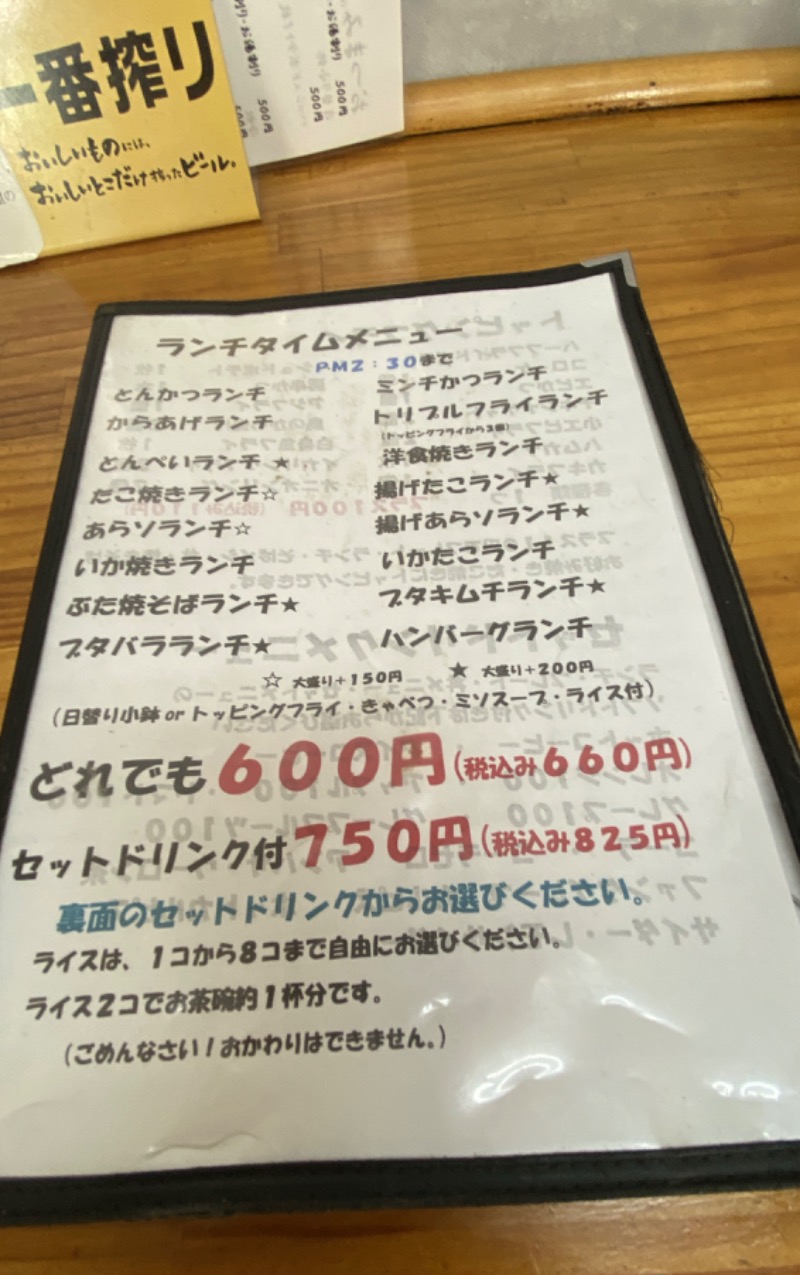 一番搾り
おいしいものには、
おいしいとこだけ搾ったビール。
お湯割り 500円
500円
500円
500円
ランチタイムメニュー
PM2:30まで
とんかつランチ
からあげランチ
とんぺいランチ ★
たこ焼きランチ☆
あらソランチ☆
いか焼きランチ
ぶた焼そばランチ★
ブタバラランチ★
ミンチかつランチ
トリプルフライランチ
(トッピングフライから3個)
洋食焼きランチ
揚げたこランチ★
揚げあらソランチ★
いかたこランチ
ブタキムチランチ★
ハンバーグランチ
☆ 大盛り+150円 ★ 大盛り+200円
(日替り小鉢orトッピングフライ・きゃべつ・ミソスープ・ライス付)
どれでも600円(税込み660円)
セットドリンク付750円(税込み825円)
裏面のセットドリンクからお選びください。
ライスは、1コから8コまで自由にお選びください。
ライス2コでお茶碗約1杯分です。
(ごめんなさい!おかわりはできません。)